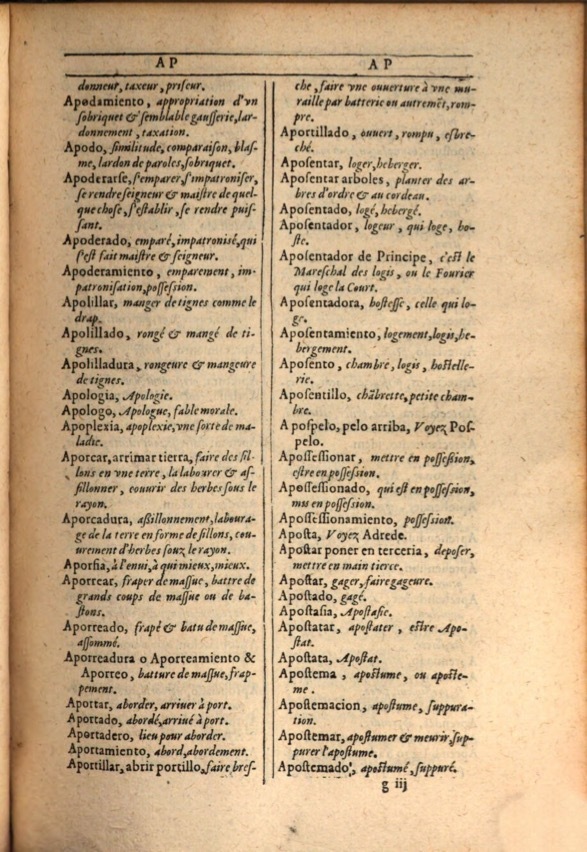 AP
donneur, taxeur, priseur.
Apodamiento, appropriation d'vn
sobriquet & semblable gausserie, lar-
donnement, taxation.
Apodo, similitude, comparaison, blas-
me, lardon de paroles, sobriquet.
Apoderarse, s'emparer, s'impatroniser,
se rendre seigneur & maistre de quel-
que chose, s'establir, se rendre puis-
sant.
Apoderado, emparé, impatronisé, qui
s'est fait maistre & seigneur.
Apoderamiento, emparement, im-
patronisation, possession.
Apolillar, manger de tignes comme le
drap.
Apolillado, rongé & mangé de ti-
gnes.
Apolilladura, rongeure & mangeure
de tignes.
Apologia, Apologie.
Apologo, Apologue, fable morale.
Apoplexia, apoplexie, vne sorte de ma-
ladie.
Aporcar, arrimar tierra, faire des sil-
lons en vne terre, la labourer & as-
sillonner, couurir des herbes sous le
rayon.
Aporcadura, assillonnement, laboura-
ge de la terre en forme de sillons, cou-
urement d'herbes souz le rayon.
Aporfia, à l'enui, à qui mieux, mieux.
Aporrear, fraper de massue, battre de
grands coups de massue ou de ba-
stons.
Aporreado, frapé & batu de massue,
assommé.
Aporreadura o Aporreamiento &
Aporreo, batture de massue, frap-
pement.
Aportar, aborder, arriuer à port.
Aportado, abordé, arriué à port.
Aportadero, lieu pour aborder.
Aportamiento, abord, abordement.
Aportillar, abrir portillo, faire bres-
AP
che, faire vne ouuerture à vne mu-
raille par batterie ou autremēt, rom-
pre.
Aportillado, ouuert, rompu, esbre-
ché.
Aposentar, loger, heberger.
Aposentar arboles, planter des ar-
bres d'ordre & au cordeau.
Aposentado, logé, hebergé.
Aposentador, logeur, qui loge, ho-
ste.
Aposentador de Principe, c'est le
Mareschal des logis, ou le Fourier
qui loge la Court.
Aposentadora, hostesse, celle qui lo-
ge.
Aposentamiento, logement, logis, he-
bergement.
Aposento, chambre, logis, hostelle-
rie.
Aposentillo, chābrette, petite cham-
bre.
A pospelo, pelo arriba, Voyez Pos-
pelo.
Apossessionar, mettre en possession,
estre en possession.
Apossessionado, qui est en possession,
mis en possession.
Apossessionamiento, possession.
Aposta, Voyez Adrede.
Apostar poner en terceria, deposer,
mettre en main tierce.
Apostar, gager, faire gageure.
Apostado, gagé.
Apostasia, Apostasie.
Apostatar, apostater, estre Apo-
stat.
Apostata, Apostat.
Apostema, apostume, ou aposte-
me.
Apostemacion, apostume, suppura-
tion.
Apostemar, apostumer & meurir, sup-
purer l'apostume.
Apostemado, apostumé, suppuré.
g iij